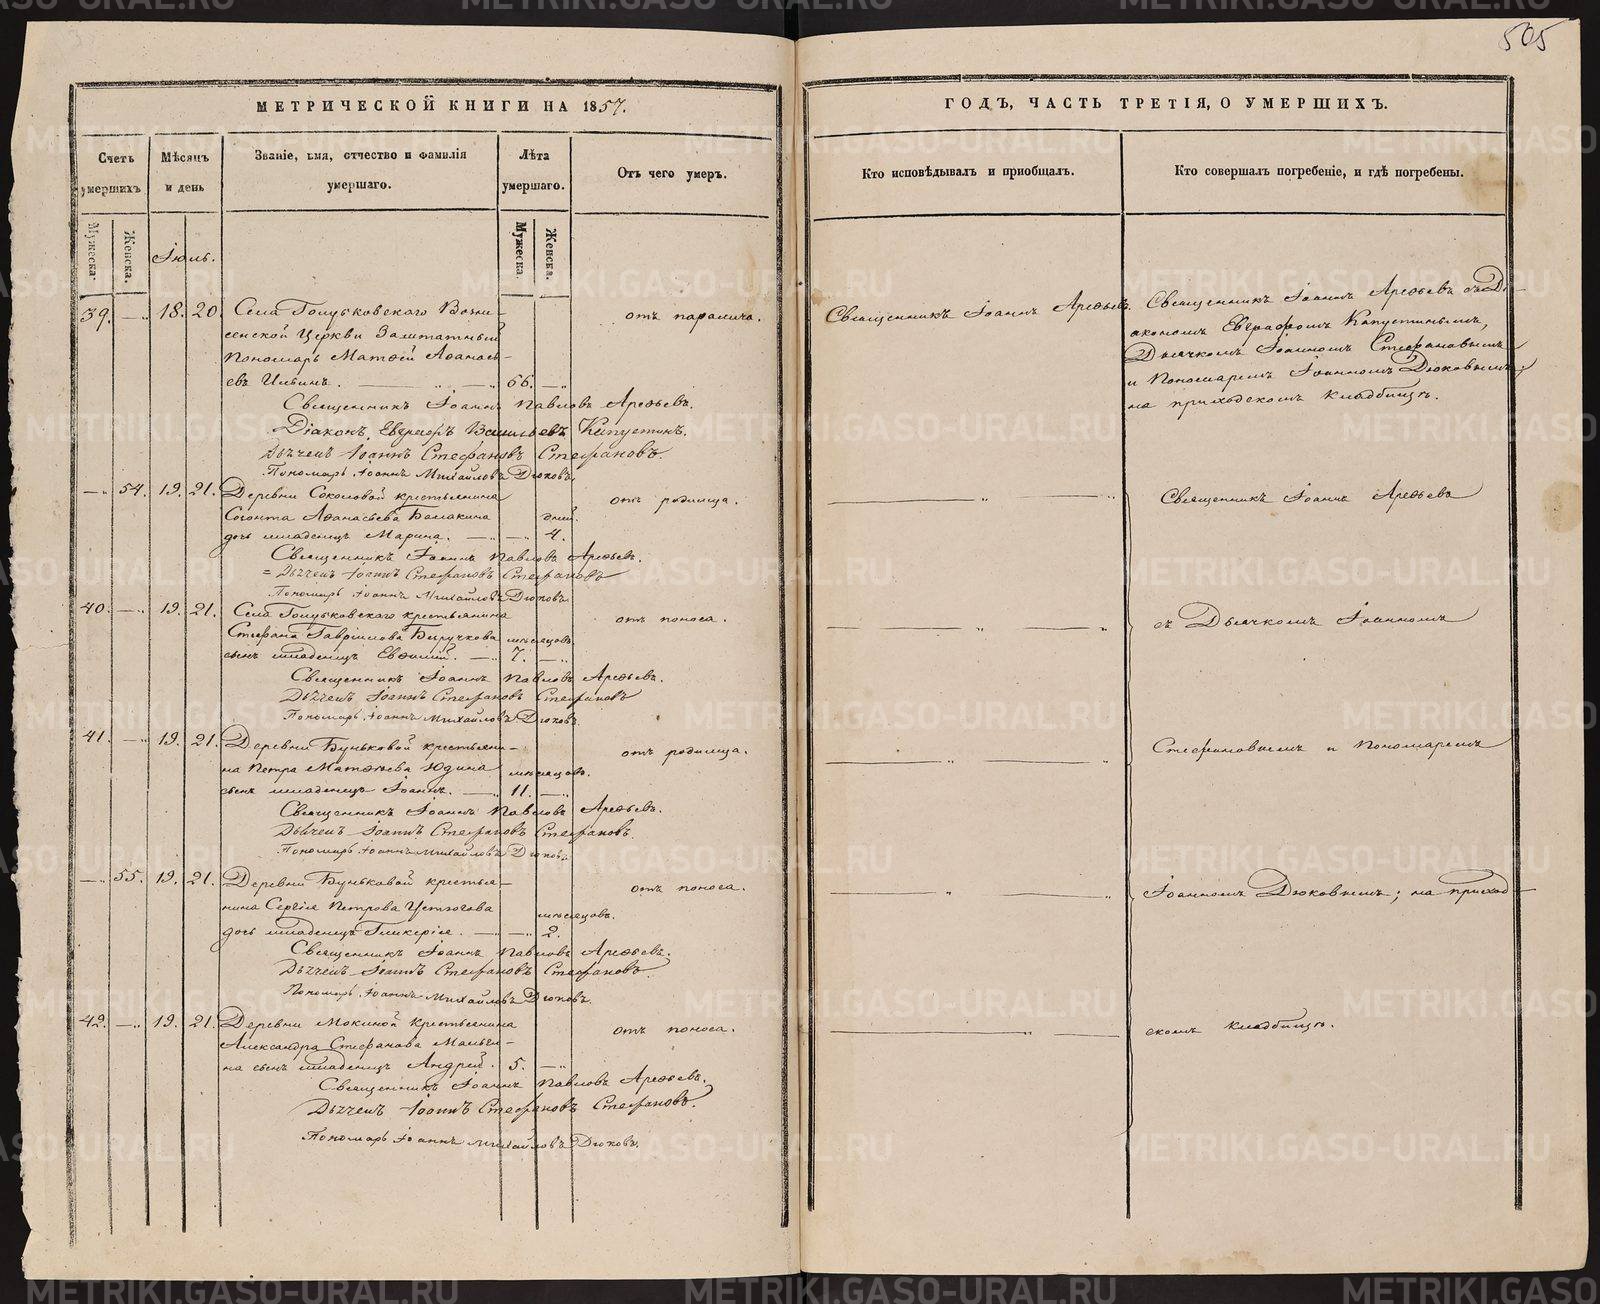 505
МЕТРИЧЕСКОЙ КНИГИ НА 1857.
Счетъ умершихъ
Мѣсяцъ и день
Званіе, имя, отчество и фамилія умершаго.
Лѣта умершаго.
Отъ чего умеръ.
Мужеска.
Женска.
Мужеска.
Женска.
Іюль.
39. — 18. 20
Села Голубковскаго Возне-
сенской Церкви Заштатный
Пономарь Матѳей Аѳанась-
евъ Ильинъ. 66.
отъ паралича.
Священникъ Іоаннъ Павловъ Арефьевъ.
Діаконъ Евграфъ Васильевъ Капустинъ.
Дьячекъ Іоаннъ Стефановъ Стефановъ.
Пономарь Іоаннъ Михайловъ Дюковъ.
— 54. 19. 21.
Деревни Соколовой крестьянина
Созонта Аѳанасьева Балакина дней.
дочь младенецъ Марина. 4.
отъ родимца.
Священникъ Іоаннъ Павловъ Арефьевъ.
Дьячекъ Іоаннъ Стефановъ Стефановъ
Пономарь Іоаннъ Михайловъ Дюковъ.
40. — 19. 21.
Села Голубковскаго крестьянина
Стефана Гавріилова мѣсяцовъ
сынъ младенецъ Евѳимій. 7.
отъ поноса.
Священникъ Іоаннъ Павловъ Арефьевъ.
Дьячекъ Іоаннъ Стефановъ Стефановъ
Пономарь Іоаннъ Михайловъ Дюковъ.
41. — 19. 21.
Деревни Буньковой крестьяни-
на Петра Матѳеьева Юдина мѣсяцовъ.
сынъ младенецъ Іоаннъ. 11.
отъ родимца.
Священникъ Іоаннъ Павловъ Арефьевъ.
Дьячекъ Іоаннъ Стефановъ Стефановъ.
Пономарь Іоаннъ Михайловъ Дюковъ.
— 55. 19. 21.
Деревни Буньковой крестья-
нина Сергія Петрова Устюгова мѣсяцовъ.
дочь младенецъ Гликерія. 2.
отъ поноса.
Священникъ Іоаннъ Павловъ Арефьевъ.
Дьячекъ Іоаннъ Стефановъ Стефановъ.
Пономарь Іоаннъ Михайловъ Дюковъ.
42. — 19. 21.
Деревни Мокиной крестьянина
Александра Стефанова Мальги-
на сынъ младенецъ Андрей. 5.
отъ поноса.
Священникъ Іоаннъ Павловъ Арефьевъ.
Дьячекъ Іоаннъ Стефановъ Стефановъ.
Пономарь Іоаннъ Михайловъ Дюковъ.
ГОДЪ, ЧАСТЬ ТРЕТІЯ, О УМЕРШИХЪ.
Кто исповѣдывалъ и пріобщалъ.
Кто совершалъ погребеніе, и гдѣ погребены.
Священникъ Іоаннъ Арефьевъ
Священникъ Іоаннъ Арефьевъ съ Ді-
акономъ Евграфомъ Капустинымъ,
Дьячкомъ Іоанномъ Стефановымъ
и Пономаремъ Іоанномъ Дюковымъ;
на приходскомъ кладбищѣ.
Священникъ Іоаннъ Арефьевъ
съ Дьячкомъ Іоанномъ
Стефановымъ и Пономаремъ
Іоанномъ Дюковымъ; на приход-
скомъ кладбищѣ.
METRIKI.GASO-URAL.RU